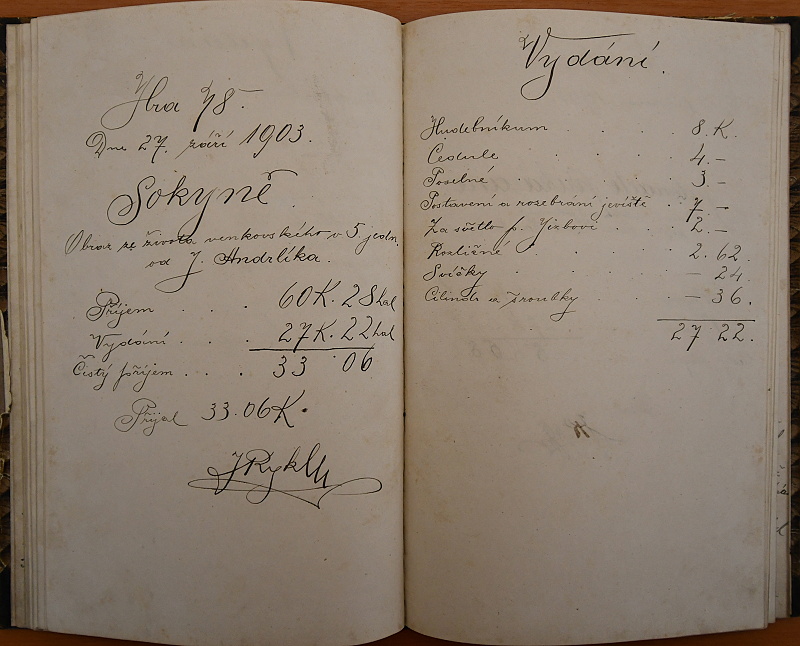 Hra 78.
Dne 27. září 1903.
Sokyně.
Obraz ze života venkovského v 5 jedn.
od J. Andrlíka.
Příjem . . . 60K. 28hal
Vydání . . . 27K. 22hal
Čistý příjem . . . 33 06
Přijal 33.06K.
Vydání.
Hudebníkum . . . . 8.K.
Cedule . . . . 4.–
Poselné . . . . 3.–
Postavení a rozebrání jeviště . 7.–
Za světlo p. . . . 2.–
Rozličné . . . . 2.62.
Svíčky . . . . – 24.
Cilindr a šroubky . . . . – 36.
27 22.